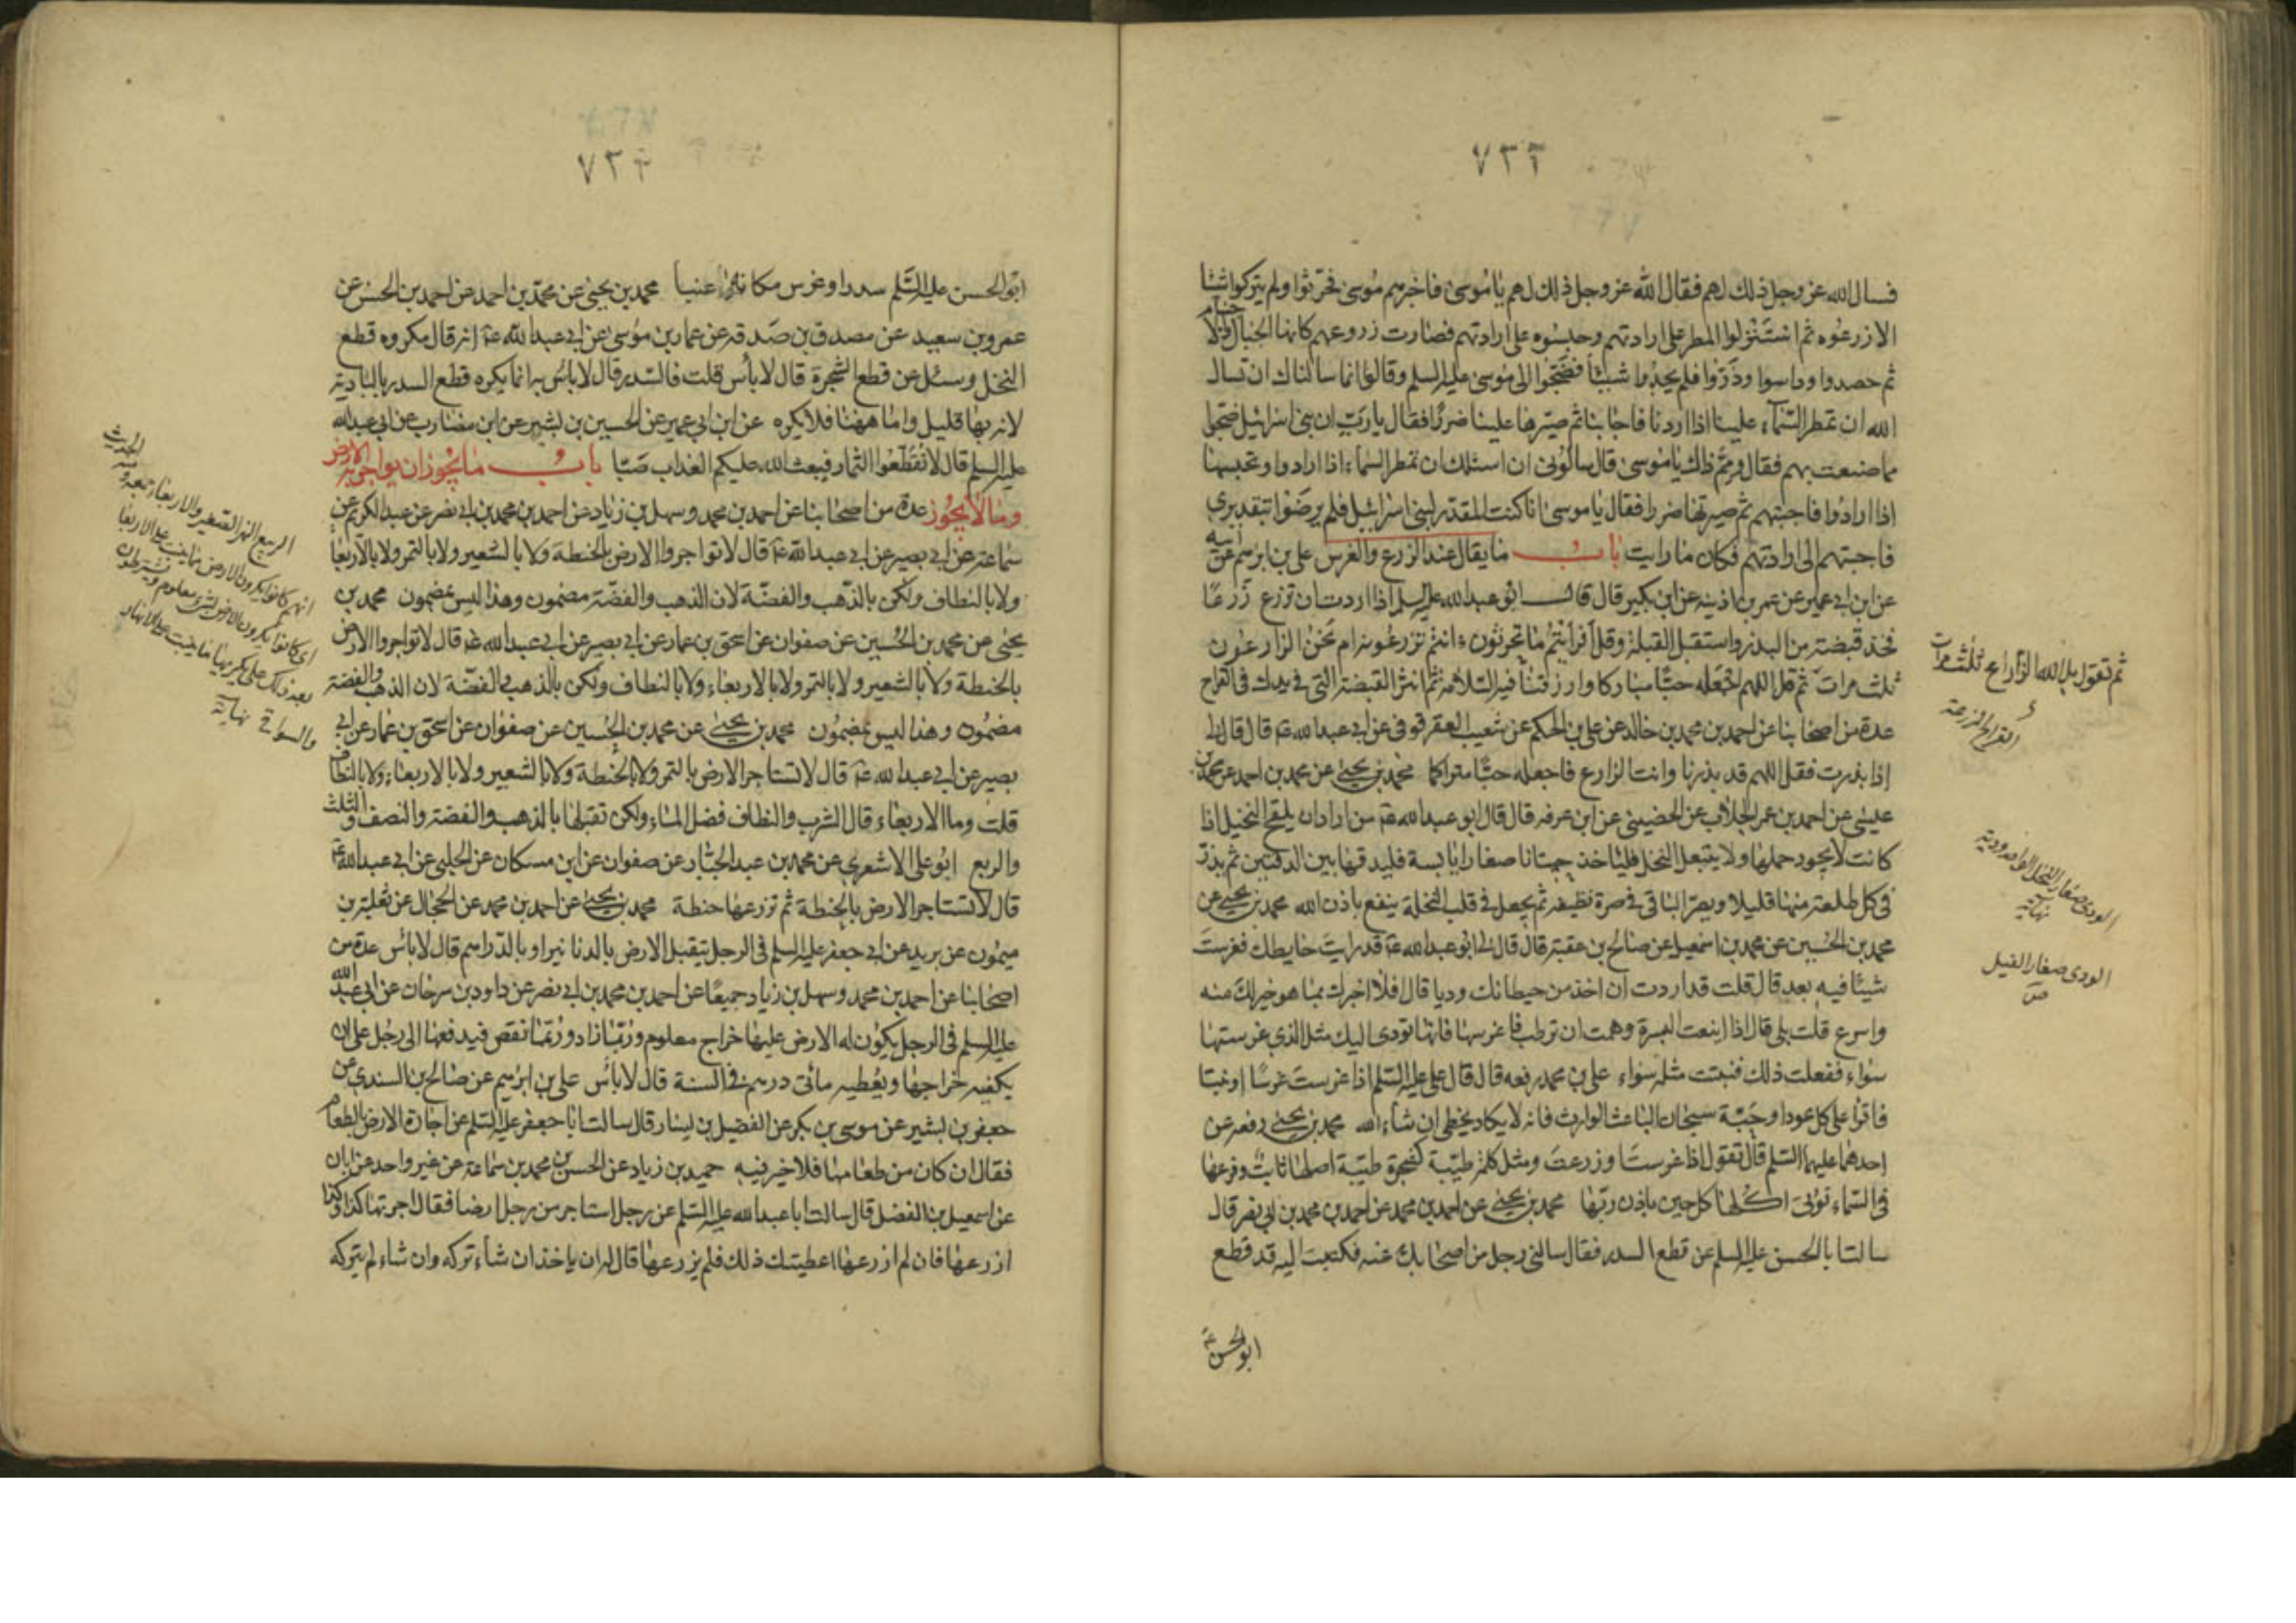 ٧٢٢
فسال الله عز وجل ذلك لهم فقال الله عز وجل ذلك لهم يا موسى فاخبرهم موسى فحرثوا ولم يتركوا شيئا
الا زرعوه ثم استنزلوا المطر على ارادتهم وحبسوه على ارادتهم فصارت زروعهم كانها الجبال والاجام
ثم حصدوا وداسوا وذروا فلم يجدوا شيئا فضجوا الى موسى عليه السلم وقالوا انما سالناك ان تسال
الله ان تمطر السماء علينا اذا اردنا فاجابنا ثم صيرها علينا ضررا فقال يا رب ان بنى اسرائيل ضجوا
مما صنعت بهم فقال ومم ذاك يا موسى قال سالونى ان اسئلك ان تمطر السماء اذا ارادوا وتحبسها
اذا ارادوا فاجبتهم ثم صيرتها ضررا فقال يا موسى انا كنت المقدر لبنى اسرائيل فلم يرضوا بتقديرى
فاجبتهم الى ارادتهم فكان ما رايت باب ما يقال عند الزرع والغرس على بن ابرهيم عن ابيه
عن ابن ابى عمير عن عمر بن اذينه عن ابن بكير قال قال ابو عبدالله عليه السلم اذا اردت ان تزرع زرعا
فخذ قبضة من البذر واستقبل القبلة وقل أفرأيتم ما تحرثون ءانتم تزرعونه ام نحن الزارعون
ثلث مرات ثم قل اللهم اجعله حبا مباركا وارزقنا فيه السلامة ثم انثر القبضة التى فى يدك فى القراح
عدة من اصحابنا عن احمد بن محمد بن خالد عن على بن الحكم عن شعيب العقرقوفى عن ابى عبدالله ع قال قال لى
اذا بذرت فقل اللهم قد بذرنا وانت الزارع فاجعله حبا متراكما محمد بن يحيى عن محمد بن احمد عن محمد بن
عيسى عن احمد بن عمر الجلاب عن الحضينى عن ابن عرفه قال قال ابو عبدالله ع من اراد ان يلقح النخيل اذا
كانت لا يجود حملها ولا يتبعل النخل فلياخذ حيتانا صغارا يابسة فليدقها بين الدقتين ثم يذر
فى كل طلعة منها قليلا ويصر الباقى فى صرة نظيفه ثم يجعل فى قلب النخلة ينفع باذن الله محمد بن يحيى عن
محمد بن الحسين عن محمد بن اسمعيل عن صالح بن عقبة قال قال لى ابو عبدالله ع قد رايت حايطك فغرست
شيئا فيه بعد قال قلت قد اردت ان اخذ من حيطانك وديا قال افلا اخبرك بما هو خير لك منه
واسرع قلت بلى قال اذا اينعت البسرة وهمت ان ترطب فاغرسها فانها تودى اليك مثل الذى غرستها
سواء ففعلت ذلك فنبتت مثله سواء على بن محمد رفعه قال قال على عليه السلم اذا غرست غرسا او نبتا
فاقرا على كل عود او حبة سبحان الباعث الوارث فانه لا يكاد يخطى ان شاء الله محمد بن يحيى رفعه عن
احدهما عليهما السلم قال تقول اذا غرست او زرعت ومثل كلمة طيبة كشجرة طيبة اصلها ثابت وفرعها
فى السماء توتى اكلها كل حين باذن ربها محمد بن يحيى عن احمد بن محمد عن احمد بن محمد بن ابى نصر قال
سالت ابا الحسن عليه السلم عن قطع السدر فقال سالنى رجل من اصحابك عنه فكتبت اليه قد قطع
ابو الحسن ع
ثم تقول بل الله الزارع ثلث مرات
القراح المزرعة
الودى صغار النخل الواحد ودية
نهاية
الودى صغار الفسيل
ص
ابو الحسن عليه السلم سدرا وغرس مكانه عنبا محمد بن يحيى عن محمد بن احمد عن احمد بن الحسن عن
عمرو بن سعيد عن مصدق بن صدقه عن عمار بن موسى عن ابى عبدالله ع انه قال مكروه قطع
النخل وسئل عن قطع الشجرة قال لا باس قلت فالسدر قال لا باس به انما يكره قطع السدر بالبادية
لانه بها قليل واما ههنا فلا يكره عن ابن ابى عمير عن الحسين بن بشير عن ابن مضارب عن ابى عبدالله
عليه السلم قال لا تقطعوا الثمار فيبعث الله عليكم العذاب صبا باب ما يجوز ان يواجر به الارض
وما لا يجوز عدة من اصحابنا عن احمد بن محمد وسهل بن زياد عن احمد بن محمد بن ابى نصر عن عبد الكريم عن
سماعة عن ابى بصير عن ابى عبدالله ع قال لا تواجروا الارض بالحنطة ولا بالشعير ولا بالتمر ولا بالاربعا
ولا بالنطاف ولكن بالذهب والفضة لان الذهب والفضة مضمون وهذا ليس بمضمون محمد بن
يحيى عن محمد بن الحسين عن صفوان عن اسحق بن عمار عن ابى بصير عن ابى عبدالله ع قال لا تواجروا الارض
بالحنطة ولا بالشعير ولا بالتمر ولا بالاربعاء ولا بالنطاف ولكن بالذهب والفضة لان الذهب والفضة
مضمون وهذا ليس بمضمون محمد بن يحيى عن محمد بن الحسين عن صفوان عن اسحق بن عمار عن ابى
بصير عن ابى عبدالله ع قال لا تستاجر الارض بالتمر ولا بالحنطة ولا بالشعير ولا بالاربعاء ولا بالنطاف
قلت وما الاربعاء قال الشرب والنطاف فضل الماء ولكن تقبلها بالذهب والفضة والنصف والثلث
والربع ابو على الاشعرى عن محمد بن عبد الجبار عن صفوان عن ابن مسكان عن الحلبى عن ابى عبدالله ع
قال لا تستاجر الارض بالحنطة ثم تزرعها حنطة محمد بن يحيى عن احمد بن محمد عن الحجال عن ثعلبة بن
ميمون عن بريد عن ابى جعفر عليه السلم فى الرجل يتقبل الارض بالدنانير او بالدراهم قال لا باس عدة من
اصحابنا عن احمد بن محمد وسهل بن زياد جميعا عن احمد بن محمد بن ابى نصر عن داود بن سرحان عن ابى عبد الله
عليه السلم فى الرجل يكون له الارض عليها خراج معلوم وربما زاد وربما نقص فيدفعها الى رجل على ان
يكفيه خراجها ويعطيه مائتى درهم فى السنة قال لا باس على بن ابرهيم عن صالح بن السندى عن
جعفر بن بشير عن موسى بن بكر عن الفضيل بن يسار قال سالت ابا جعفر عليه السلم عن اجارة الارض بالطعام
فقال ان كان من طعامها فلا خير فيه حميد بن زياد عن الحسن بن محمد بن سماعة عن غير واحد عن ابان
عن اسمعيل بن الفضل قال سالت ابا عبدالله عليه السلم عن رجل استاجر من رجل ارضا فقال اجرتها كذا وكذا
ازرعها فان لم ازرعها اعطيتك ذلك فلم يزرعها قال له ان ياخذ ان شاء تركه وان شاء لم يتركه
الربيع النهر الصغير والاربعاء جمعه ومنه الحديث
انهم كانوا يكرون الارض بما ينبت على الاربعا
اى كانوا يكرون الارض بشىء معلوم ويشترطون
بعد ذلك على مكتريها ما ينبت على الانهار
والسواقى نهاية